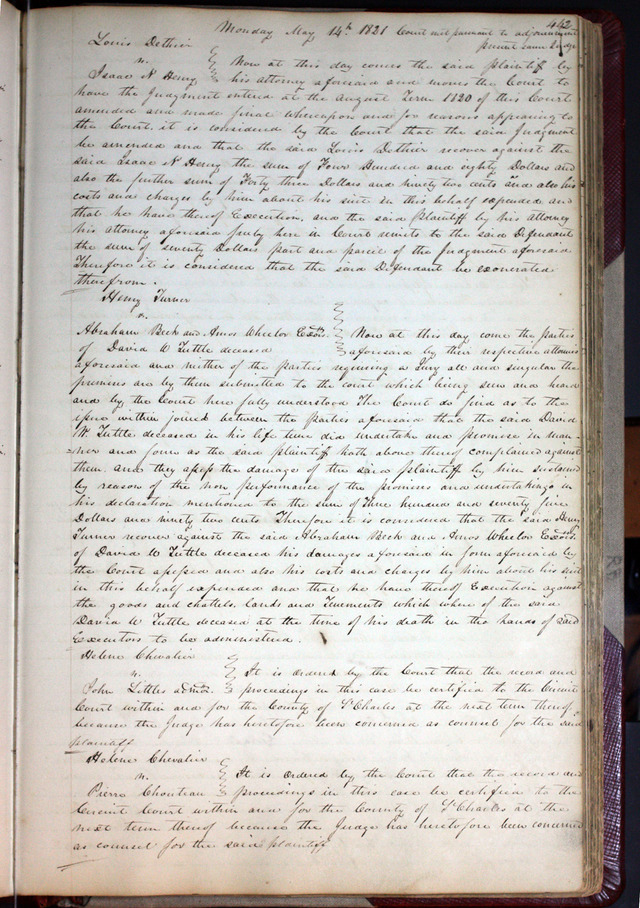 442
Monday May 14th 1821 Court met pursuant to adjournment
present same Judge
Louis Dethier
vs.
Isaac N Henry
Now at this day comes the said plaintiff by
his attorney aforesaid and moves the Court to
have the Judgment entered at the August Term 1820 of this Court
amended and made final whereupon and for reasons appearing to
the Court it is considered by the Court that the said Judgment
be amended and that the said Louis Dethier recover against the
said Isaac N Henry the sum of Four Hundred and eighty Dollars and
also the further sum of Forty three Dollars and ninety two cents and also his
costs and charges by him about his suit in this behalf expended and
that he have thereof Execution, and the said Plaintiff by his attorney
his attorney aforesaid freely here in Court remits to the said Defendant
the sum of seventy Dollars part and parcel of the Judgment aforesaid
Therefore it is considered that the said Defendant be exonerated
therefrom.
Henry Turner
vs.
Abraham Beck and Amos Wheeler Exors.
of David W Tuttle deceased
Now at this day come the Parties
aforesaid by their respective attornies
aforesaid and neither of the parties requiring a Jury all and singular the
premises are by them submitted to the court which being seen and heard
and by the Court here fully understood The Court do find as to the
issue within joined between the Parties aforesaid that the said David
W. Tuttle deceased in his life time did undertake and promise in man-
=ner and form as the said plaintiff hath above thereof complained against
them. And they assess the damages of the said plaintiff by him sustained
by reason of the non performance of the promises and undertakings in
his declaration mentioned to the sum of three hundred and seventy five
Dollars and ninety two cents Therefore it is considered that the said Henry
Turner recover against the said Abraham Beck and Amos Wheeler Exors.
of David W Tuttle deceased his damages aforesaid in form aforesaid by
the Court assessed and also his costs and charges by him about his suit
in this behalf expended and that he have thereof Execution against
the goods and chattels, lands and Tenements which where of the said
David W Tuttle deceased at the time of his death in the hands of said
Executors to be administered.
Helene Chevalier
vs.
John Littles admor.
It is ordered by the Court that the record and
proceedings in this case be certified to the Circuit
Court within and for the County of St Charles at the next term thereof
because the Judge has heretofore been concerned as counsel for the said
plaintiff
Helene Chevalier
vs.
Pierre Chouteau
It is ordered by the Court that the record and
proceedings in this case be certified to the
Circuit Court within and for the County of St Charles at the
next term thereof because the Judge has heretofore been concerned
as counsel for the said plaintiff